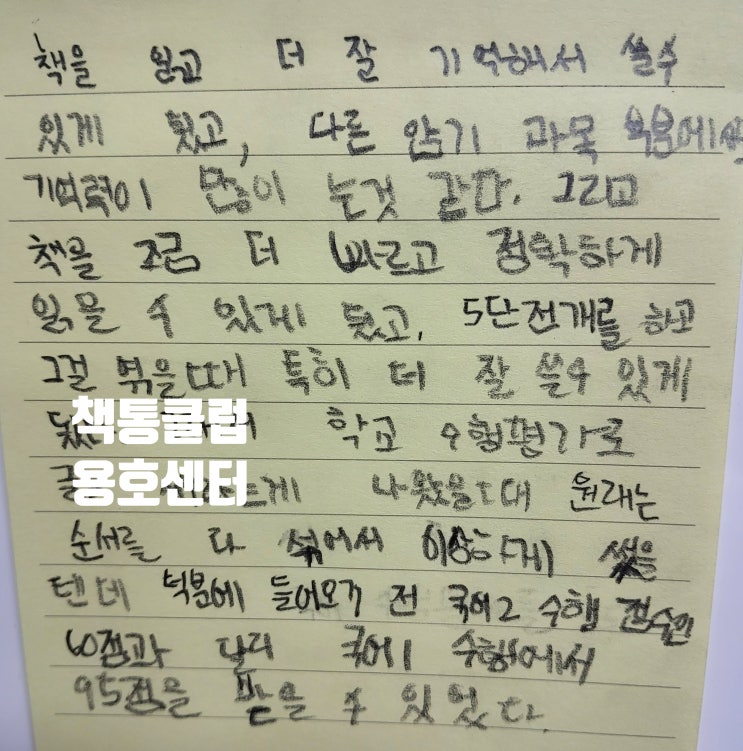 책을 읽고 더 잘 기억해서 쓸수
있게 됬고, 다른 암기 과목 덕분에
기억력이 많이 는것 같다. 그리고
책을 조금 더 빠르고 정확하게
읽을 수 있게 됬고, 5단전개를 하고
그걸 엮을때 특히 더 잘 쓸수 있게
책통클럽
학교 수행평가로
용호센터
나왔을때 원래는
순서를 다 섞어서 이상하게 썼을
텐데 덕분에 들어오기 전 국어2 수행 점수인
60점과 달리 국어1 수행에서
95점을 받을 수 있었다.